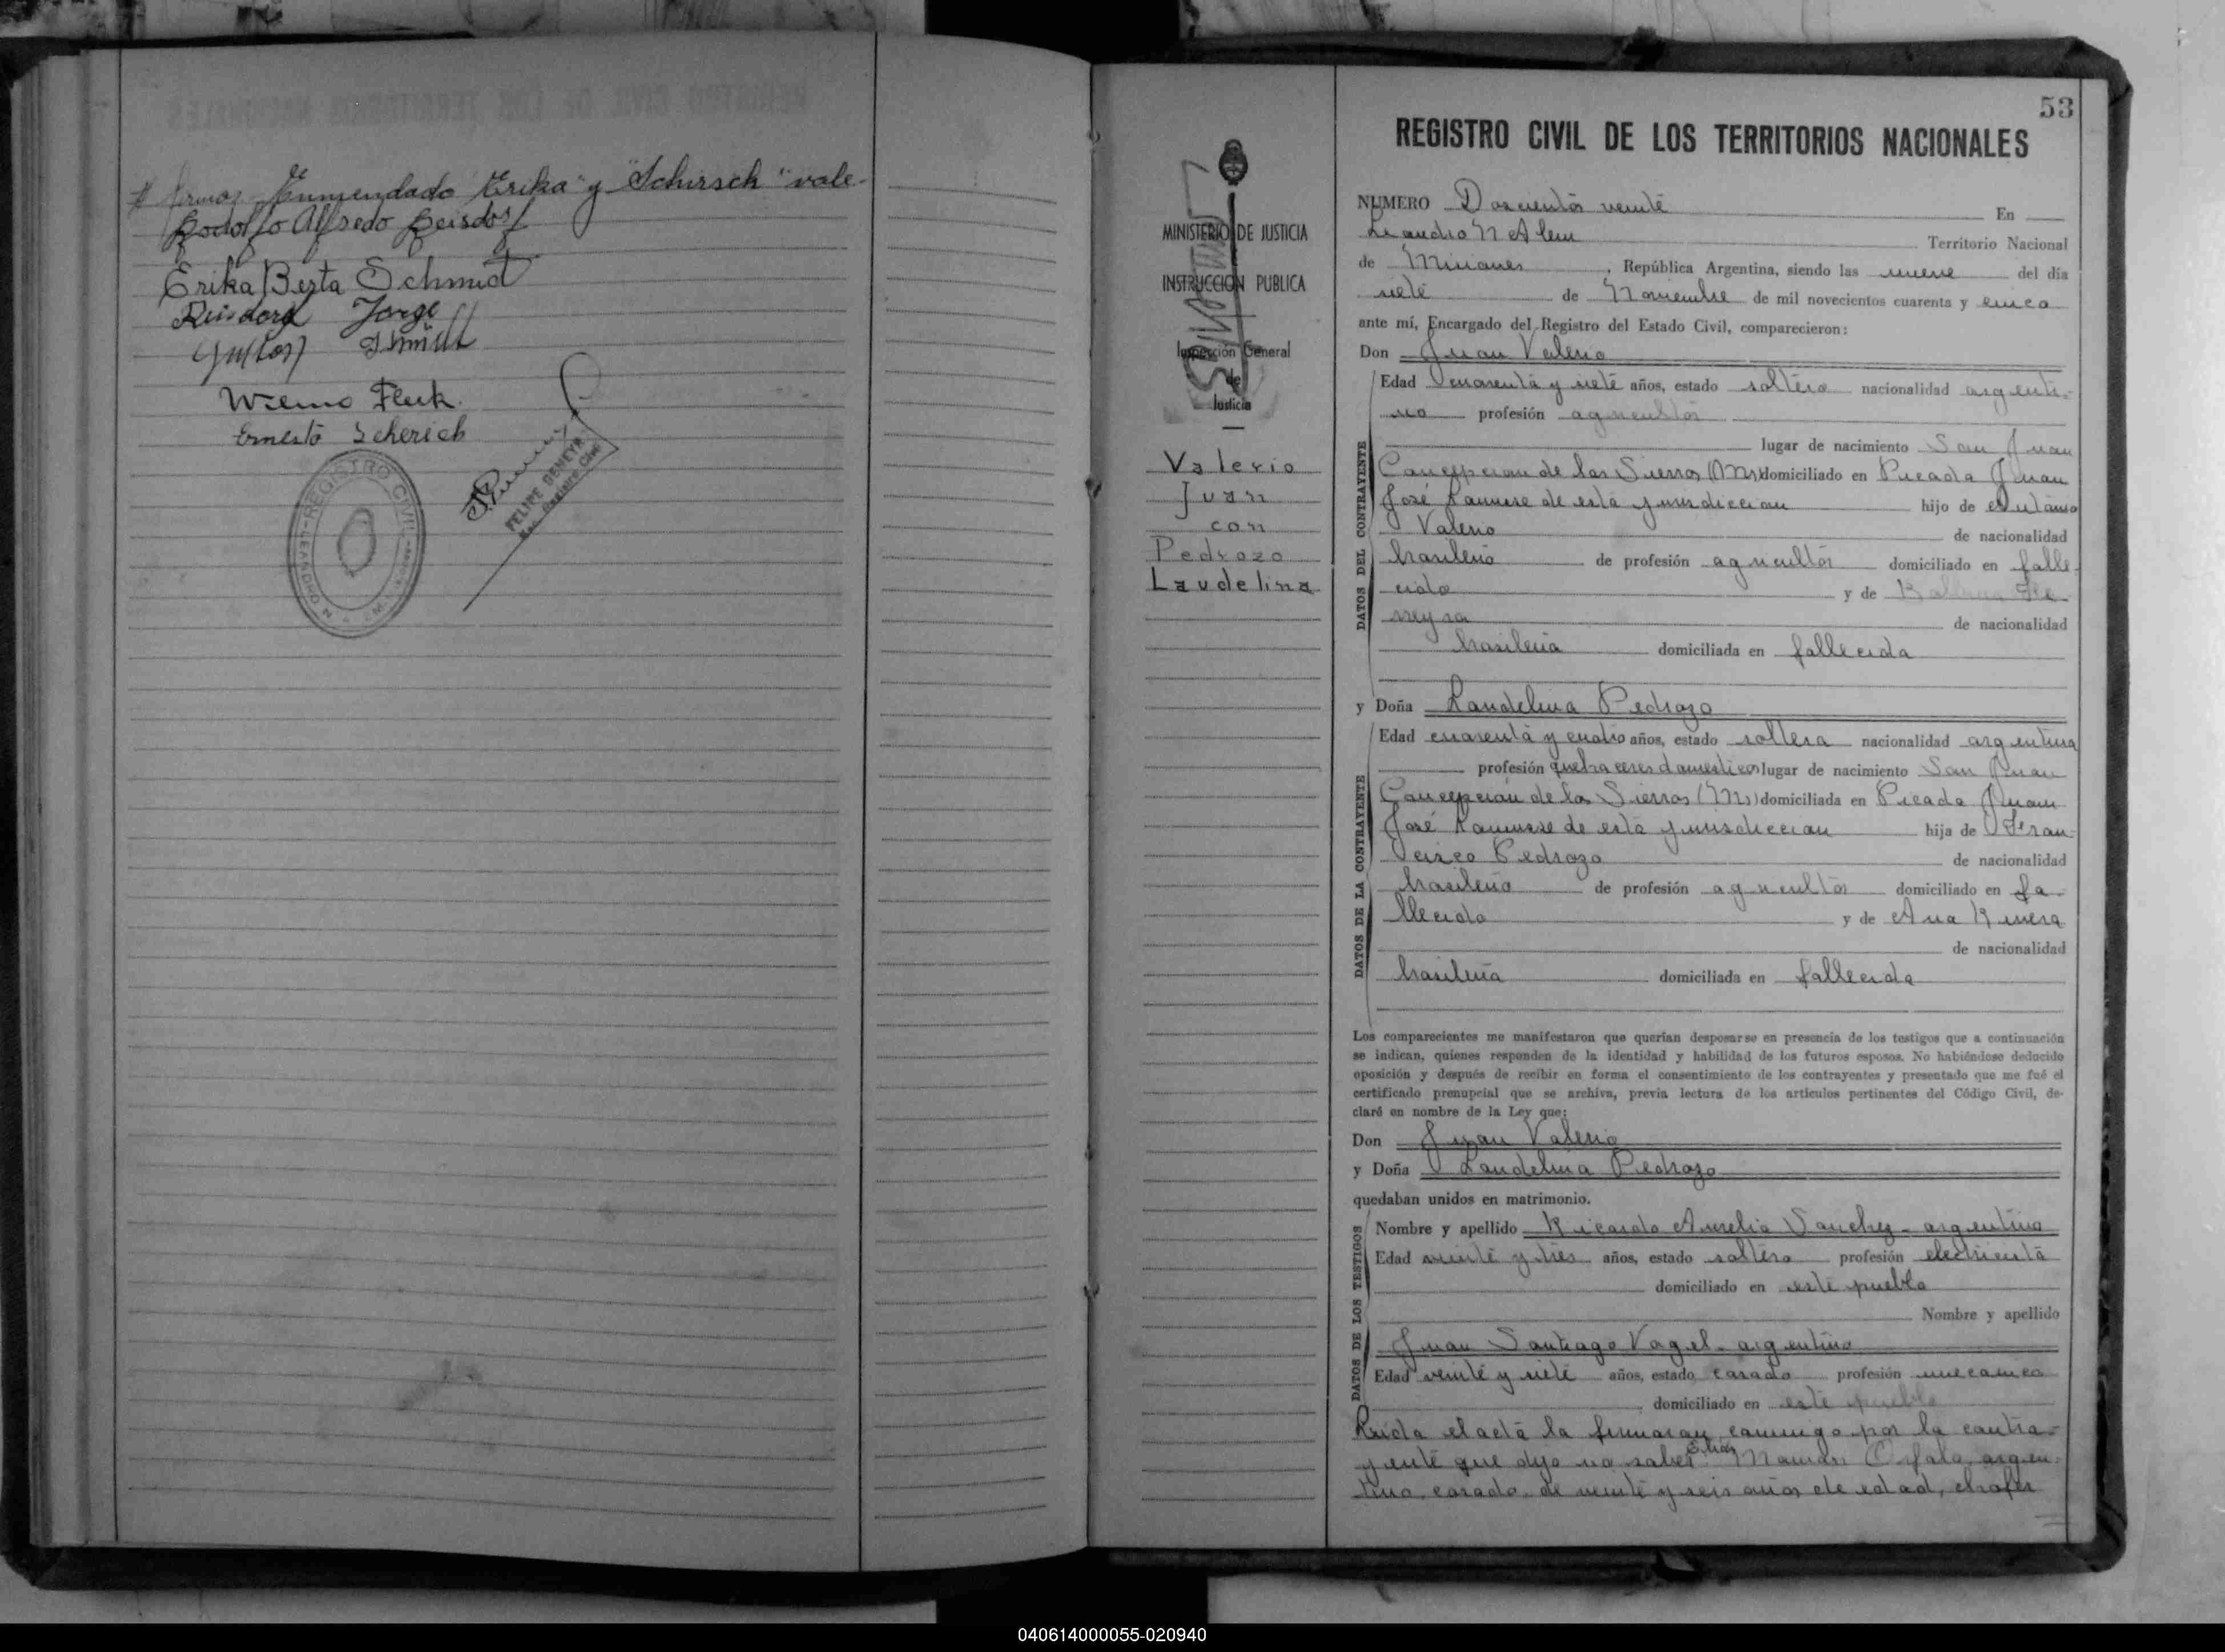 firmas - Enmendado "Erika" y "Schirsch" vale-
Rodolfo Alfredo Reisdorf
Erika Berta Schmidt
Reisdorf Jorge
Wilmo Fleck
Ernesto Scherich
REGISTRO CIVIL
FELIPE BENEYR
MINISTERIO DE JUSTICIA
INSTRUCCION PUBLICA
Inspección General
de
Justicia
Valerio
Juan
con
Pedrozo
Laudelina
53
REGISTRO CIVIL DE LOS TERRITORIOS NACIONALES
NUMERO Doscientos veinte En
Leandro N Alem Territorio Nacional
de Misiones, República Argentina, siendo las nueve del día
siete de Noviembre de mil novecientos cuarenta y cinco
ante mí, Encargado del Registro del Estado Civil, comparecieron:
Don Juan Valerio
DATOS DEL CONTRAYENTE
Edad cuarenta y siete años, estado soltero nacionalidad argenti-
no profesión agricultor
lugar de nacimiento San Juan
Concepción de las Sierras (Ms) domiciliado en Picada Juan
José Lanusse de esta jurisdiccion hijo de
Valerio de nacionalidad
brasilero de profesión agricultor domiciliado en falle-
cido y de
neyra de nacionalidad
brasilera domiciliada en fallecida
y Doña Laudelina Pedrozo
DATOS DE LA CONTRAYENTE
Edad cuarenta y cuatro años, estado soltera nacionalidad argentina
profesión quehaceres domesticos lugar de nacimiento San Juan
Concepción de las Sierras (Ms) domiciliada en Picada Juan
José Lanusse de esta jurisdiccion hija de Fran-
cisco Pedrozo de nacionalidad
brasilero de profesión agricultor domiciliado en fa-
llecido y de Ana Rivera
de nacionalidad
brasilera domiciliada en fallecida
Los comparecientes me manifestaron que querían desposarse en presencia de los testigos que a continuación
se indican, quienes responden de la identidad y habilidad de los futuros esposos. No habiéndose deducido
oposición y después de recibir en forma el consentimiento de los contrayentes y presentado que me fué el
certificado prenupcial que se archiva, previa lectura de los artículos pertinentes del Código Civil, de-
claré en nombre de la Ley que:
Don Juan Valerio
y Doña Laudelina Pedrozo
quedaban unidos en matrimonio.
DATOS DE LOS TESTIGOS
Nombre y apellido Ricardo Aurelio Sanchez - argentino
Edad veinte y tres años, estado soltero profesión electricista
domiciliado en este pueblo
Nombre y apellido
Juan Santiago Vogel - argentino
Edad veinte y siete años, estado casado profesión mecanico
domiciliado en este pueblo
Leída el acta la firmaron conmigo por la contra-
yente que dijo no saber Elias Maman argen-
tino, casado, de veinte y seis años de edad, chofer
040614000055-020940